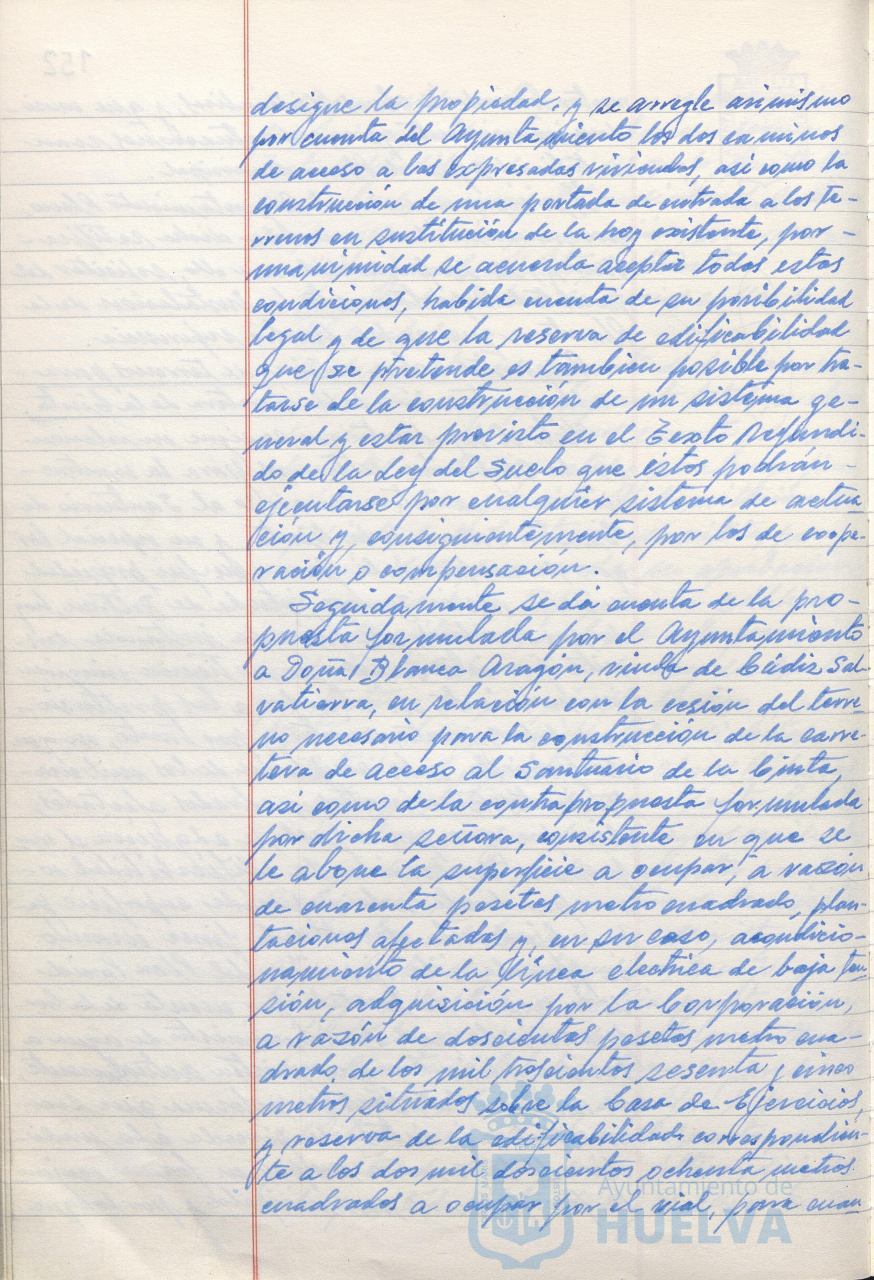 designe la propiedad, y se arregle asimismo
por cuenta del Ayuntamiento los dos caminos
de acceso a las expresadas viviendas, así como la
construcción de una portada de entrada a los te-
rrenos en sustitución de la hoy existente, por -
unanimidad se acuerda aceptar todas estas
condiciones, habida cuenta de su posibilidad
legal y de que la reserva de edificabilidad
que se pretende es tambien posible por tra-
tarse de la construcción de un sistema ge-
neral y estar previsto en el Texto Refundi-
do de la Ley del Suelo que éstos podrán -
ejecutarse por cualquier sistema de actua-
ción y, consiguientemente, por los de coope-
ración o compensación.
Seguidamente se dá cuenta de la pro-
puesta formulada por el Ayuntamiento
a Doña Blanca Aragón, viuda de Cádiz Sal-
vatierra, en relación con la cesión del terre-
no necesario para la construcción de la carre-
tera de acceso al Santuario de la Cinta,
así como de la contrapropuesta formulada
por dicha señora, consistente en que se
le abone la superficie a ocupar, a razón
de cuarenta pesetas metro cuadrado, plan-
taciones afectadas y, en su caso, acondicio-
namiento de la línea electrica de baja ten-
sión, adquisición por la Corporación,
a razón de doscientas pesetas metro cua-
drado, de los mil trescientos sesenta y cinco
metros situados sobre la Casa de Ejercicios,
y reserva de la edificabilidad correspondien-
te a los dos mil doscientos ochenta metros
cuadrados a ocupar por el vial, para cuan-
Ayuntamiento de
HUELVA